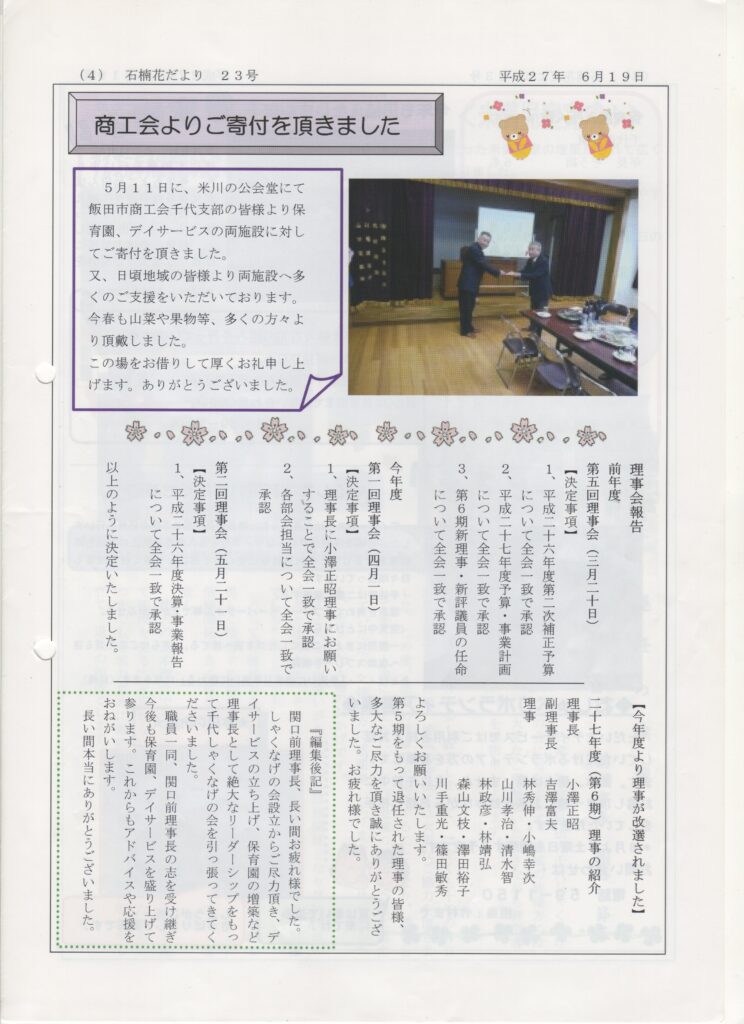 （４）　石楠花だより　２３号
平成２７年　６月１９日
商工会よりご寄付を頂きました
５月１１日に、米川の公会堂にて
飯田市商工会千代支部の皆様より保
育園、デイサービスの両施設に対し
てご寄付を頂きました。
又、日頃地域の皆様より両施設へ多
くのご支援をいただいております。
今春も山菜や果物等、多くの方々よ
り頂戴しました。
この場をお借りして厚くお礼申し上
げます。ありがとうございました。
理事会報告
前年度
第五回理事会（三月二十日）
【決定事項】
１、平成二十六年度第二次補正予算
について全会一致で承認
２、平成二十七年度予算・事業計画
について全会一致で承認
３、第６期新理事・新評議員の任命
について全会一致で承認
今年度
第一回理事会（四月一日）
【決定事項】
１、理事長に小澤正昭理事にお願い
することで全会一致で承認
２、各部会担当について全会一致で
承認
第二回理事会（五月二十一日）
【決定事項】
１、平成二十六年度決算・事業報告
について全会一致で承認
以上のように決定いたしました。
【今年度より理事が改選されました】
二十七年度（第６期）理事の紹介
理事長　小澤正昭
副理事長　吉澤富夫
理事　林秀伸・小嶋幸次
山川孝治・清水智
林政彦・林靖弘
森山文枝・澤田裕子
川手重光・篠田敏秀
よろしくお願いいたします。
第５期をもって退任された理事の皆様、
多大なご尽力を頂き誠にありがとうござ
いました。お疲れ様でした。
『編集後記』
関口前理事長、長い間お疲れ様でした。
しゃくなげの会設立からご尽力頂き、デ
イサービスの立ち上げ、保育園の増築など
理事長として絶大なリーダーシップをもっ
て千代しゃくなげの会を引っ張ってきてく
ださいました。
職員一同、関口前理事長の志を受け継ぎ
今後も保育園、デイサービスを盛り上げて
参ります。これからもアドバイスや応援を
おねがいします。
長い間本当にありがとうございました。